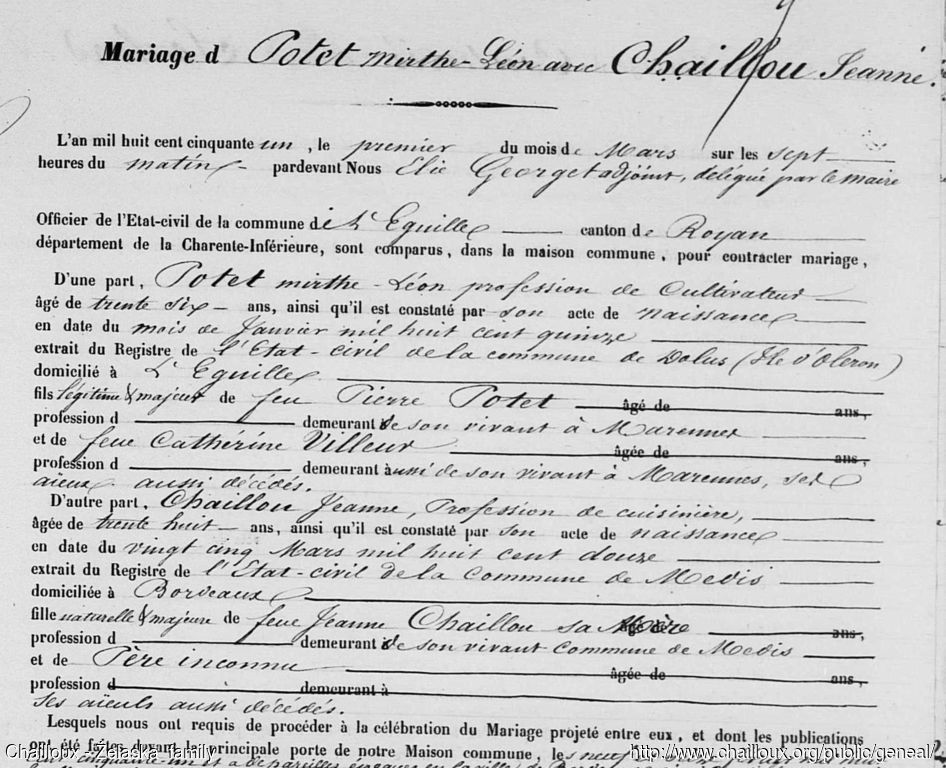 Mariage d Potet mirthe-Léon avec Chaillou Jeanne.
L'an mil huit cent cinquante un, le premier du mois de Mars sur les sept
heures du matin pardevant Nous Elie Georget adjoint, délégué par le maire
Officier de l'Etat-civil de la commune de L'Eguille canton de Royan
département de la Charente-Inférieure, sont comparus, dans la maison commune, pour contracter mariage,
D'une part, Potet mirthe-Léon profession de Cultivateur
âgé de trente six ans, ainsi qu'il est constaté par son acte de naissance
en date du mois de Janvier mil huit cent quinze
extrait du Registre de l'Etat-civil de la commune de Dolus (Ile d'Oleron)
domicilié à L'Eguille
fils légitime & majeur de feu Pierre Potet âgé de ans,
profession d demeurant de son vivant à Marennes
et de feue Catherine Villeur âgée de ans,
profession d demeurant à aussi de son vivant à Marennes, ses
aïeux aussi décédés.
D'autre part, Chaillou Jeanne, Profession de cuisinière,
âgée de trente huit ans, ainsi qu'il est constaté par son acte de naissance
en date du vingt cinq Mars mil huit cent douze
extrait du Registre de l'Etat-civil de la Commune de Medis
domiciliée à Bordeaux
fille naturelle & majeure de feue Jeanne Chaillou sa Mère ans,
profession d demeurant de son vivant Commune de Medis
et de Père inconnu âgée de ans,
profession d demeurant à
Ses aïeuls aussi décédés.
Lesquels nous ont requis de procéder à la célébration du Mariage projeté entre eux, et dont les publications
ont été faites devant la principale porte de notre Maison commune, les neuf
Chailloux - Zelaska family
http://www.chailloux.org/public/geneal/